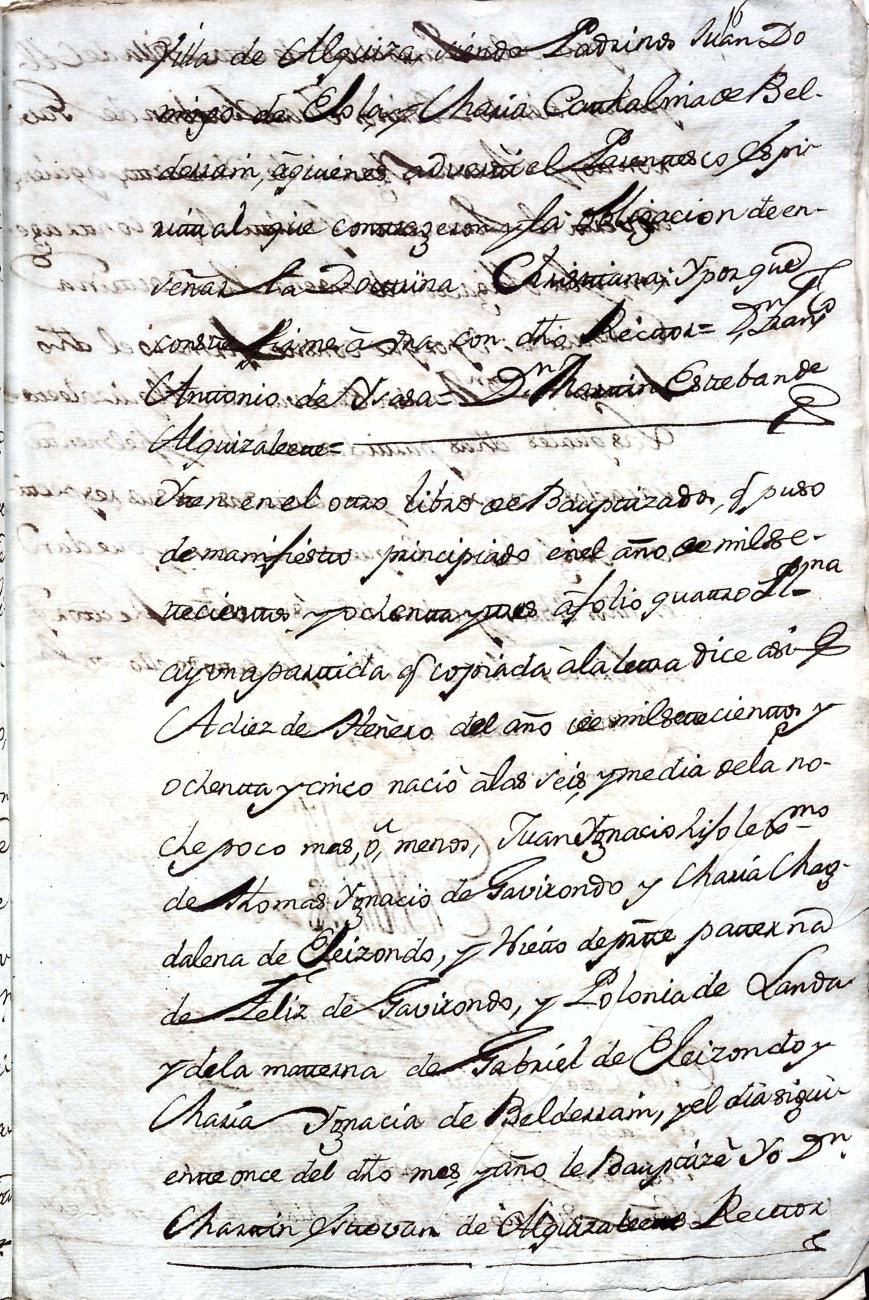 16
Villa de Alquiza, siendo Padrinos Juan Do
mingo de Elola, y Maria Cathalina de Bel-
derrain, â quienes advertì el Parentesco Espi-
ritual que contrageron y la obligacion de en-
señar la Doctrina Christiana; Y por que
conste firmè â una con dho Rector= Dn Franco
Antonio de Ysasa= Dn Martin Esteban de
Alquizalete=
Yten en el otro libro de Bauptizados, q puso
de manifiesto principiado en el año de mil se-
tecientos y ochenta y tres â folio quattro
ay una partida q copiada â la letra dice asi
A diez de Henero del año de mil setecientos y
ochenta y cinco naciò âlas seis, y media dela no-
che poco mas, ô, menos, Juan Ygnacio hijo legmo
de Thomas Ygnacio de Gavirondo y Maria Mag-
dalena de Eleizondo, y Nietto de partte patterna
de Feliz de Gavirondo, y Polonia de Landa
y dela matterna de Gabriel de Eleizondo y
Maria Ygnacia de Belderrain, y el dia sigui-
entte once del dho mes y año le Bauptizè Yo Dn
Martin Estevan de Alquizalete Rector